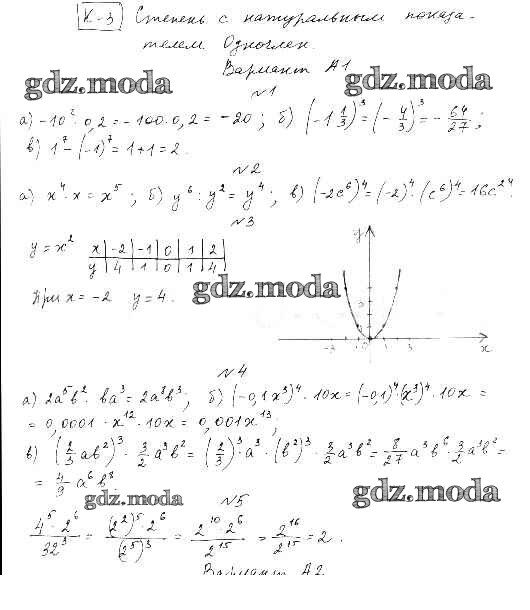 К-3 Степень с натуральным показа-
телем. Одночлен.
Вариант А1
gdz.moda gdz.moda
№1
а) -10²·0,2 = -100·0,2 = -20; б) (-1 1/3)³ = (-4/3)³ = -64/27;
в) 1⁷-(-1)⁷ = 1+1 = 2.
№2
а) x⁴·x = x⁵; б) y⁶:y² = y⁴; в) (-2c⁶)⁴ = (-2)⁴·(c⁶)⁴ = 16c²⁴
№3
y = x² x | -2 | -1 | 0 | 1 | 2 |
y | 4 | 1 | 0 | 1 | 4 |
При x = -2 y = 4.
gdz.moda
y
-3 -1 0 1 3 x
№4
а) 2a⁵b²·ba³ = 2a⁸b³; б) (-0,1x³)⁴·10x = (-0,1)⁴(x³)⁴·10x =
= 0,0001·x¹²·10x = 0,001x¹³;
в) (2/3 ab²)³·3/2 a³b² = (2/3)³·a³·(b²)³·3/2 a³b² = 8/27 a³b⁶·3/2 a³b² =
= 4/9 a⁶b⁸.
gdz.moda gdz.moda
№5
4⁵·2⁶/32³ = (2²)⁵·2⁶/(2⁵)³ = 2¹⁰·2⁶/2¹⁵ = 2¹⁶/2¹⁵ = 2.
Вариант А2